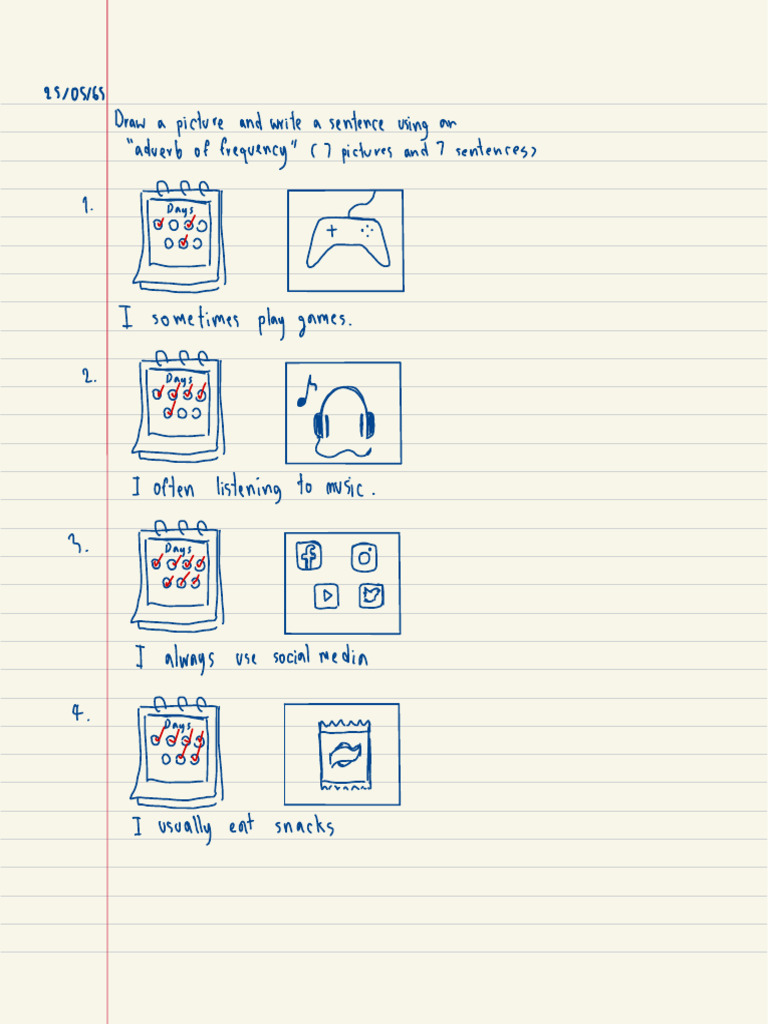 25/05/65
Draw a picture and write a sentence using an
"adverb of frequency" (7 pictures and 7 sentences)
1.
Days
I sometimes play games.
2.
Days
I often listening to music.
3.
Days
I always use social media
4.
Days
I usually eat snacks